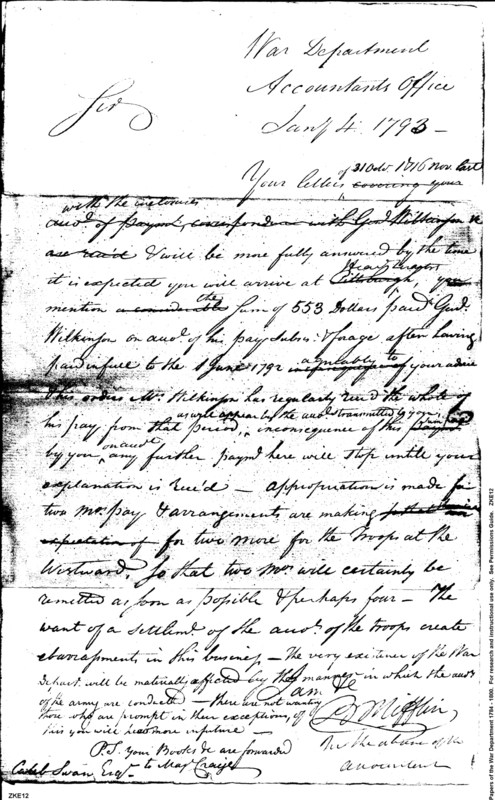 War Department
Accountants Office
Jany 4. 1793 -
Sir
Your letters of 31 Oct. & 16 Nov. last covering your
with the inclosures
auots. of paymt. correspondence with Genl. Wilkinson &c
are rec'd & will be more fully answered by the time
Head Quarters
it is expected you will arrive at Pittsburgh, you
mention a considerable the Sum of 553 Dollars paid Genl.
Wilkinson on auot. of his pay Subsis. & forage after having
paid in full to the 1 June 1792 agreeably to your advice
this orders Mr. Wilkinson has regularly rec'd the whole of
as will appear by the auots. transmitted by you
his pay from that period, inconsequence of this
by you on auot. any further paymt here will stop until your
explanation is rec'd - appropriation is made for
two Mos. pay & arrangements are making
expectation of for two more for the troops at the
Westward. So that two Mos. will certainly be
remitted as soon as possible & perhaps four - The
want of a settlemt. of the auots. of the troops create
ebarrassments in this business - the very existence of the War
Depart. will be materially affected by the manner in which the auots
of the army are conducted - there are not wanting
those who are prompt in their exceptions, of
this you will hear more in future -
I am &c
Mifflin
In the absence of the
accountant
P.S. Your Books &c are forwarded
to Majr. Craige
Caleb Swan Esqr.
ZKE12
Papers of the War Department 1784 - 1800. For research and instructional use only. See Permissions Guide. ZKE12